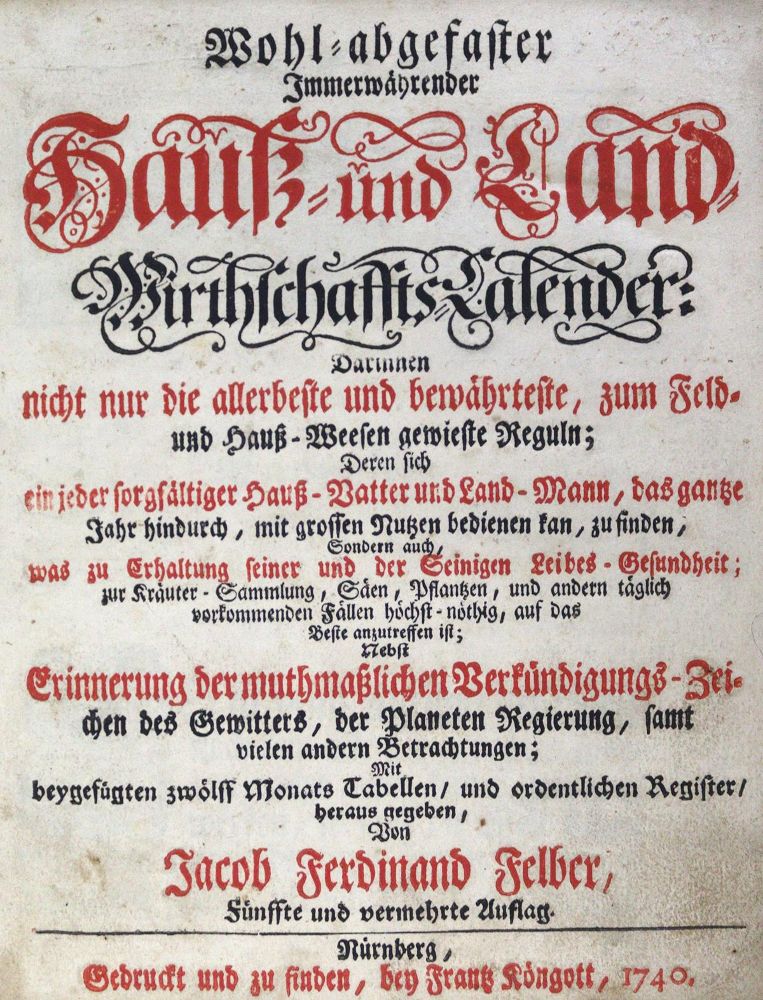 Wohl-abgefaster
Immerwährender
Hauß- und Land-
Wirthschaffts-Calender:
Darinnen
nicht nur die allerbeste und bewährteste, zum Feld-
und Hauß-Weesen gewieste Reguln;
Deren sich
ein jeder sorgfältiger Hauß-Vatter und Land-Mann, das gantze
Jahr hindurch, mit grossen Nutzen bedienen kan, zu finden,
Sondern auch,
was zu Erhaltung seiner und der Seinigen Leibes-Gesundheit;
zur Kräuter-Sammlung, Säen, Pflantzen, und andern täglich
vorkommenden Fällen höchst-nöthig, auf das
Beste anzutreffen ist;
Nebst
Erinnerung der muthmaßlichen Verkündigungs-Zei-
chen des Gewitters, der Planeten Regierung, samt
vielen andern Betrachtungen;
Mit
beygefügten zwölff Monats Tabellen/ und ordentlichen Register/
heraus gegeben,
Von
Jacob Ferdinand Felber,
Fünffte und vermehrte Auflag.
Nürnberg,
Gedruckt und zu finden, bey Frantz Köngott, 1740.